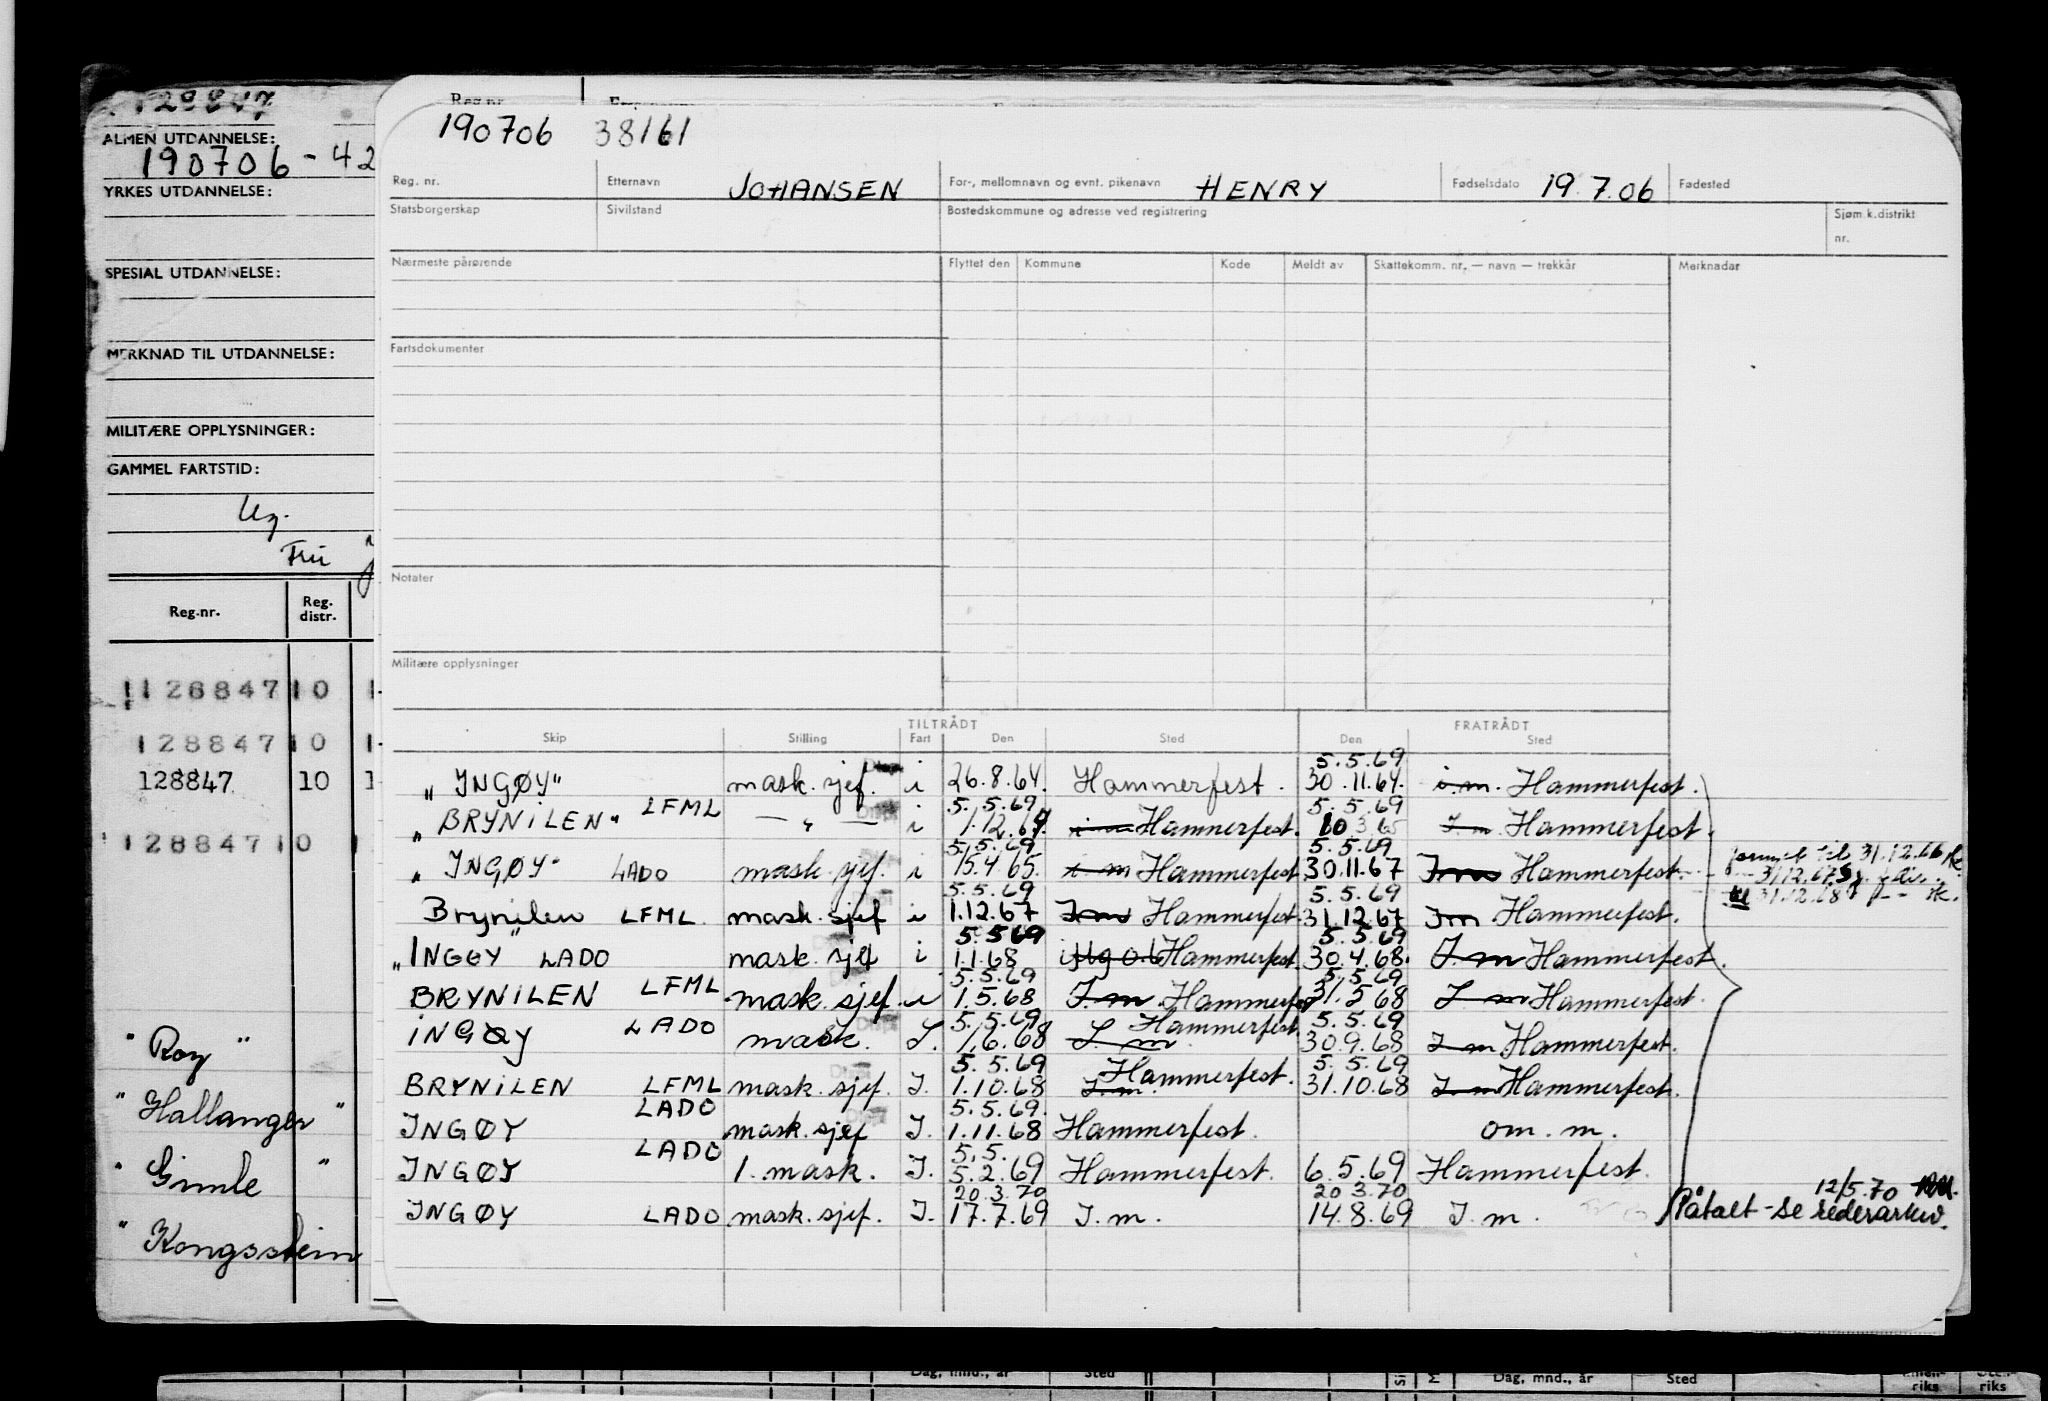 128847
ALMEN UTDANNELSE:
190706-42
YRKES UTDANNELSE:
SPESIAL UTDANNELSE:
MERKNAD TIL UTDANNELSE:
MILITÆRE OPPLYSNINGER:
GAMMEL FARTSTID:
Reg.nr. Reg. distr.
128847 10
128847 10
128847 10
128847 10
" Roy "
" Hallanger "
" Gimle "
" Kongsstein
Reg.nr.
190706 38161
Reg. nr. Etternavn JOHANSEN For-, mellomnavn og evnt. pikenavn HENRY Fødselsdato 19.7.06 Fødested
Statsborgerskap Sivilstand Bostedskommune og adresse ved registrering Sjøm.k.distrikt nr.
Nærmeste pårørende Flyttet den Kommune Kode Meldt av Skattekomm. nr. — navn — trekkår Merknadar
Fartsdokumenter
Notater
Militære opplysninger
TILTRÅDT FRATRÅDT
Skip Stilling Fart Den Sted Den Sted
5.5.69
"INGØY" mask. sjef. i 26.8.64. Hammerfest. 30.11.64. i.m. Hammerfest.
5.5.69 5.5.69
"BRYNILEN" LFML — " — i 1.12.64. i m Hammerfest. 10 3 65 I m. Hammerfest.
5.5.69 5.5.69
"INGØY" LADO mask. sjef. i 15.4.65. i m Hammerfest 30.11.67 Im Hammerfest.
til 31.12.66
31.12.67
31.12.68
5.5.69 5.5.69
Brynilen LFML mask. sjef i 1.12.67 Im Hammerfest 31.12.67 Im Hammerfest.
5.5.69 5.5.69
"INGØY" LADO mask. sjef i 1.1.68 Hammerfest. 30.4.68. I m Hammerfest.
5.5.69 5.5.69
BRYNILEN LFML mask. sjef. i 1.5.68 I m. Hammerfest 31.5 68 I m Hammerfest.
5.5.69 5.5.69
INGØY LADO mask. I. 1.6.68 I m Hammerfest. 30.9.68 I m Hammerfest.
5.5.69 5.5.69
BRYNILEN LFML mask. sjef. I. 1.10.68 I.m. Hammerfest. 31.10.68 I m Hammerfest.
5.5.69.
INGØY LADO mask. sjef I. 1.11.68 Hammerfest. om. m.
5.5.
INGØY LADO 1. mask. I. 5.2.69 Hammerfest. 6.5.69 Hammerfest.
20.3.70 20.3.70 12/5.70
INGØY LADO mask. sjef. I. 17.7.69 I.m. 14.8.69 I.m. Påtalt - se rederarkiv.
Dag, mnd., år Sted Dag, mnd., år Sted riks riks